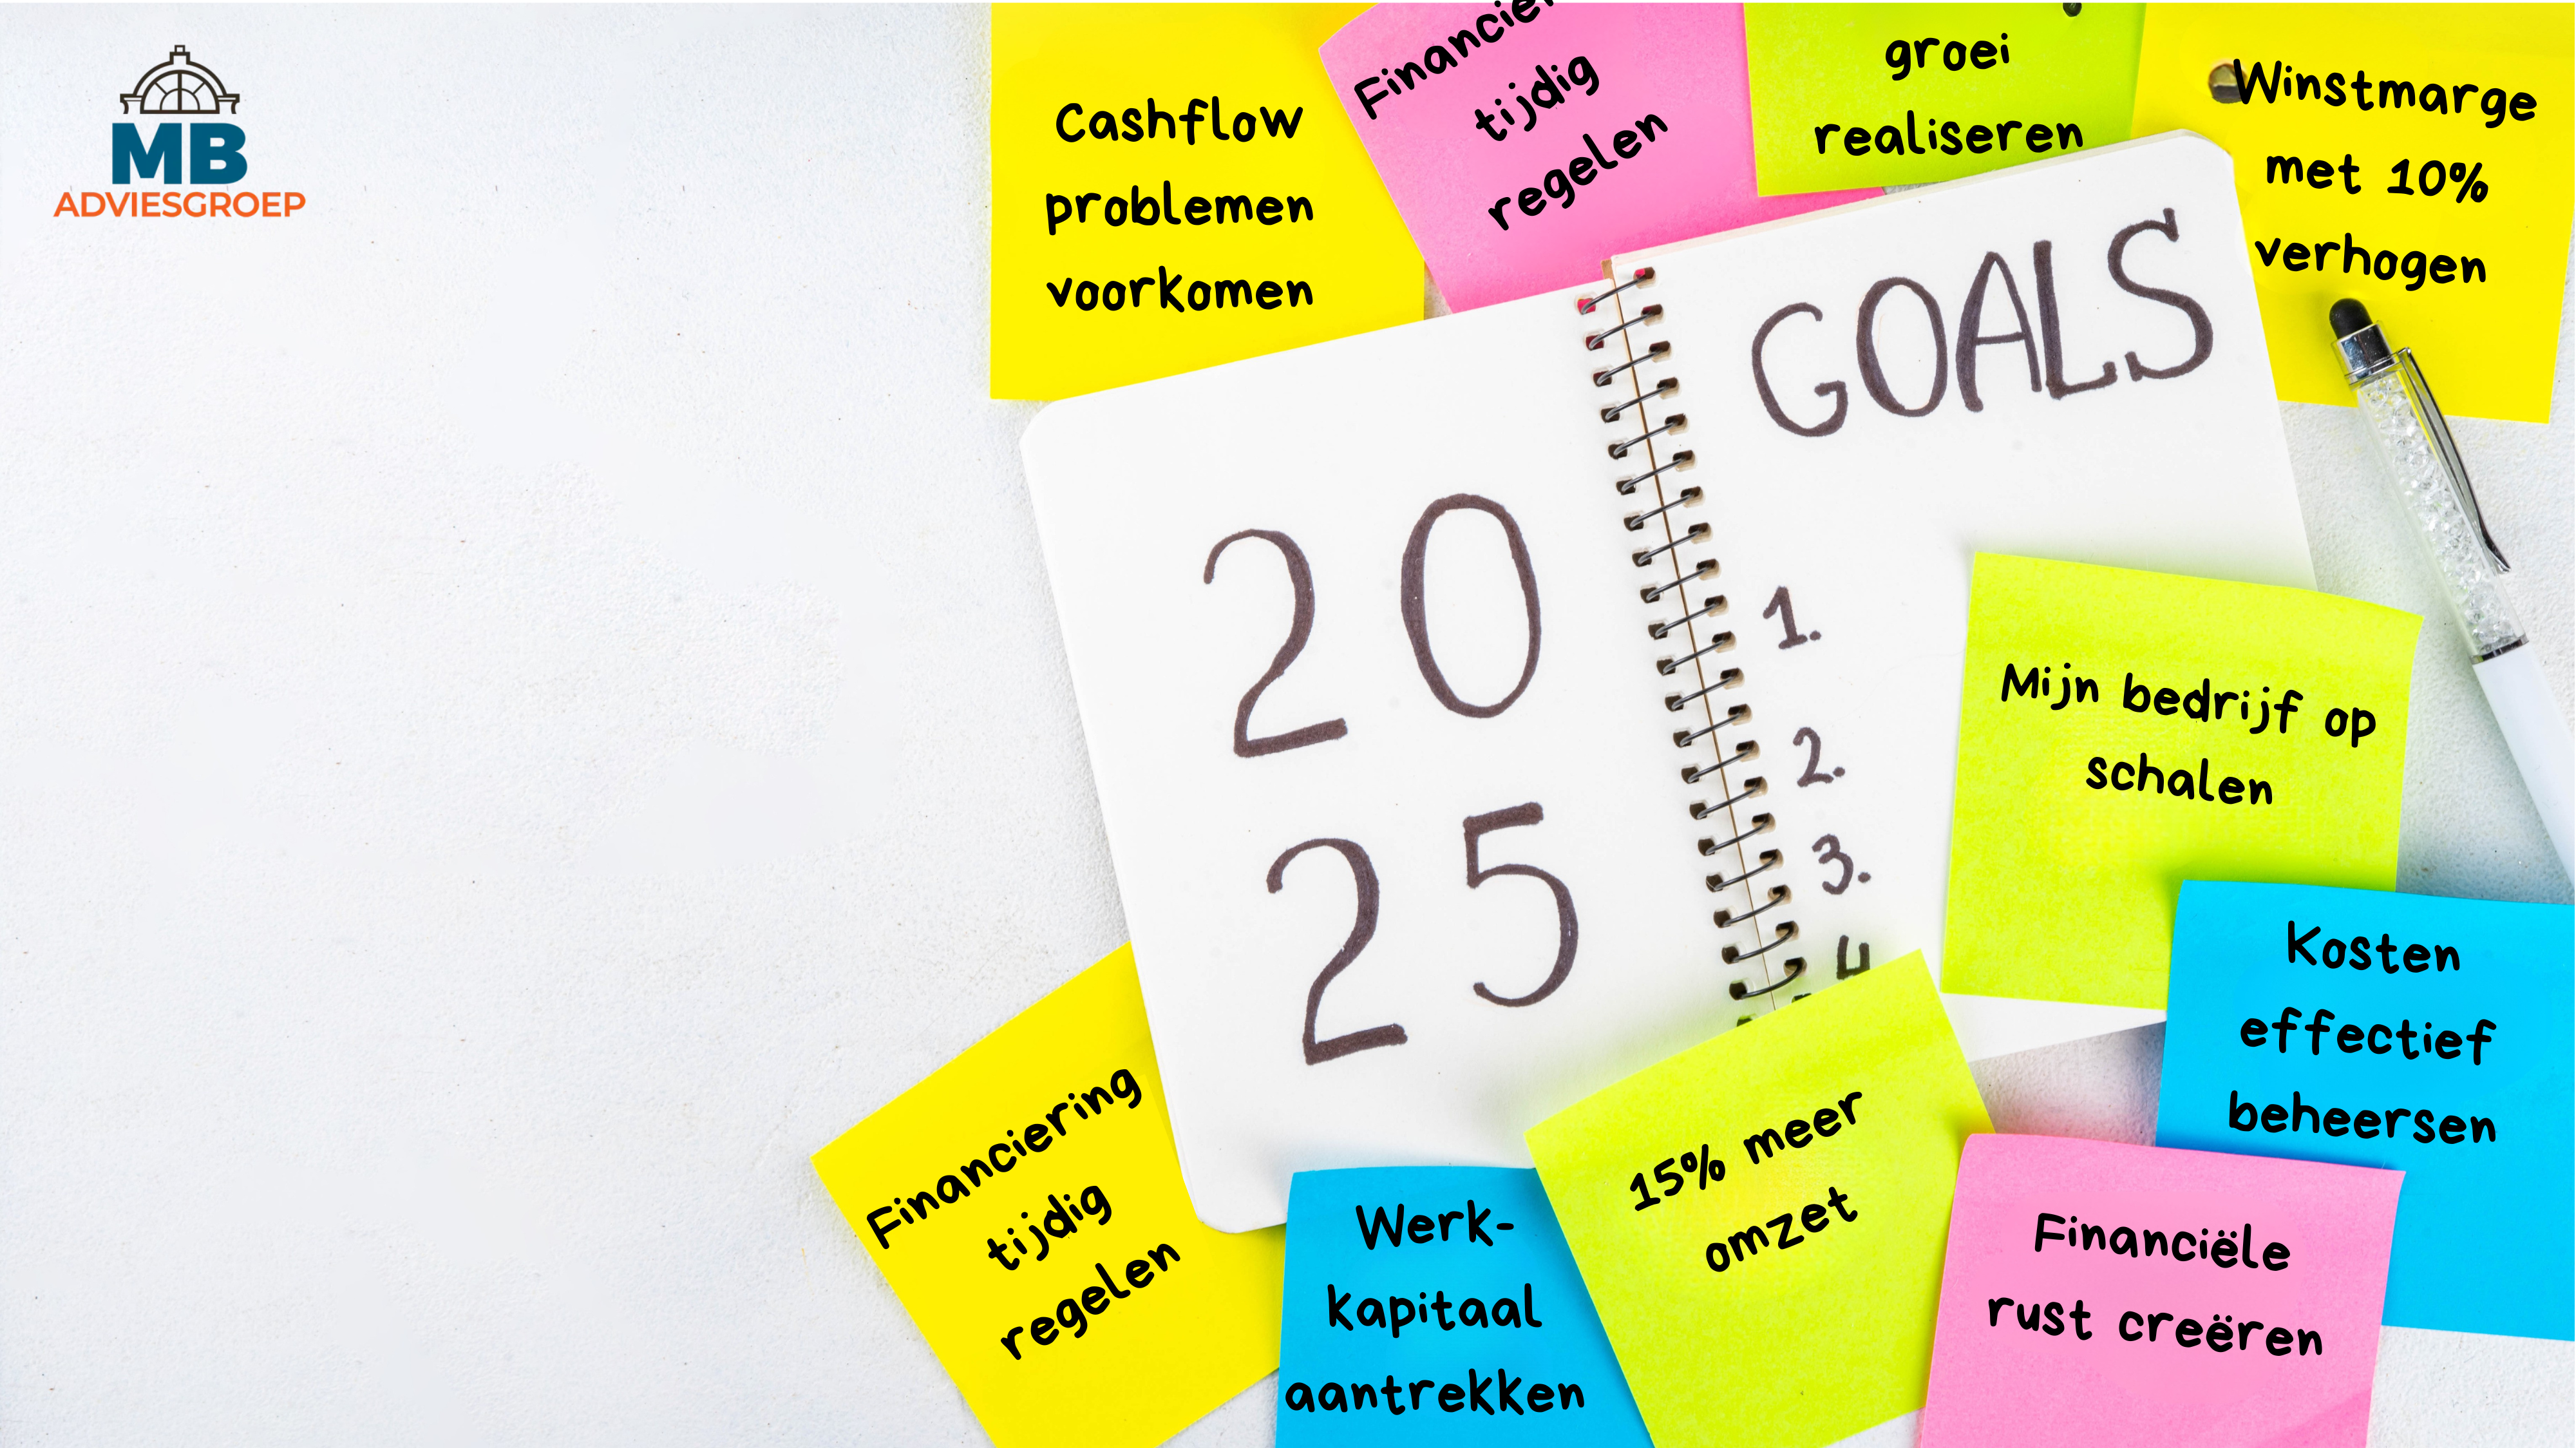 MB
ADVIESGROEP
Cashflow
problemen
voorkomen
tijdig
regelen
groei
realiseren
Winstmarge
met 10%
verhogen
GOALS
20
25
1.
2.
3.
4
Mijn bedrijf op
schalen
Kosten
effectief
beheersen
Financiering
tijdig
regelen
Werk-
kapitaal
aantrekken
15% meer
omzet
Financiële
rust creëren